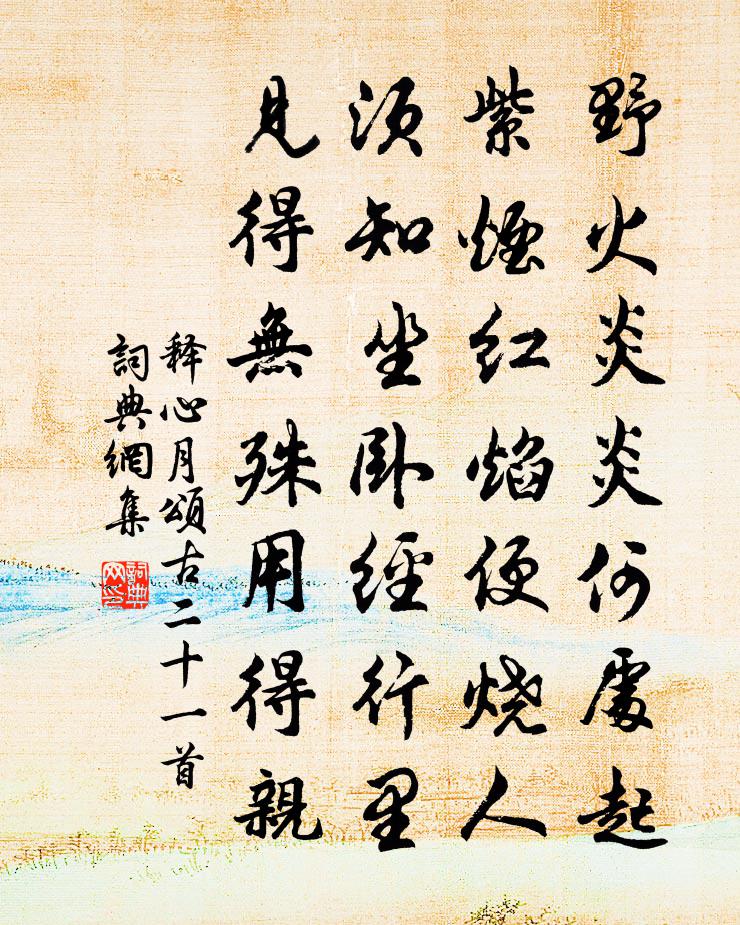 野火炎炎何處起
紫煙紅焰便烧人
須知坐卧經行里
見得無殊用得親
释心月頌古二十一首
詞典網集
詞典网